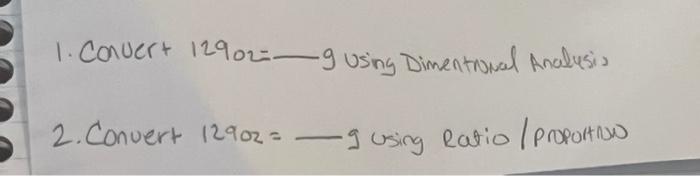 1. Convert 129oz=__g Using Dimentional Analysis
2. Convert 129oz = __g using Ratio / proportion